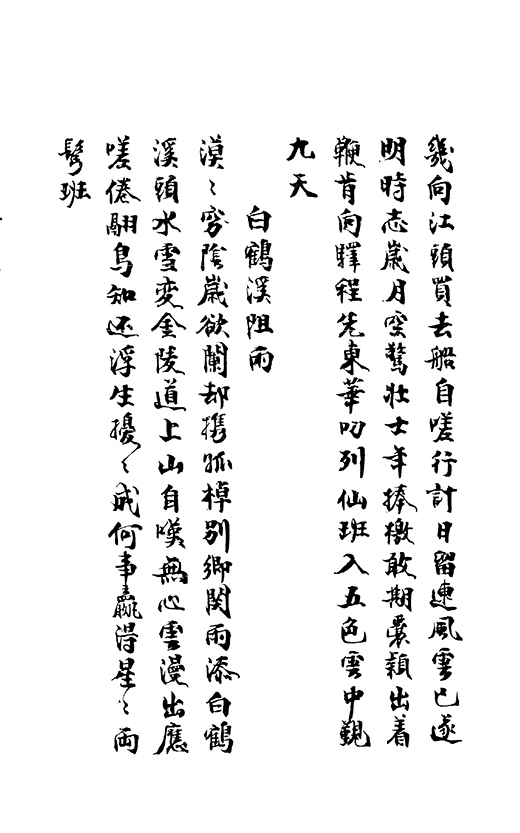 幾向江頭買去船自嗟行計日留連風雲已遂
明時志歲月空驚壯士年捧檄敢期囊穎出着
鞭肯向驛程先東華叨列仙班入五色雲中覲
九天
白鶴溪阻雨
漠〻穷陰歲欲闌却携孤棹別鄉関雨添白鶴
溪頭水雪変金陵道上山自嘆無心雲漫出應
嗟倦翮鳥知还浮生擾〻成何事贏得星〻両
鬓班